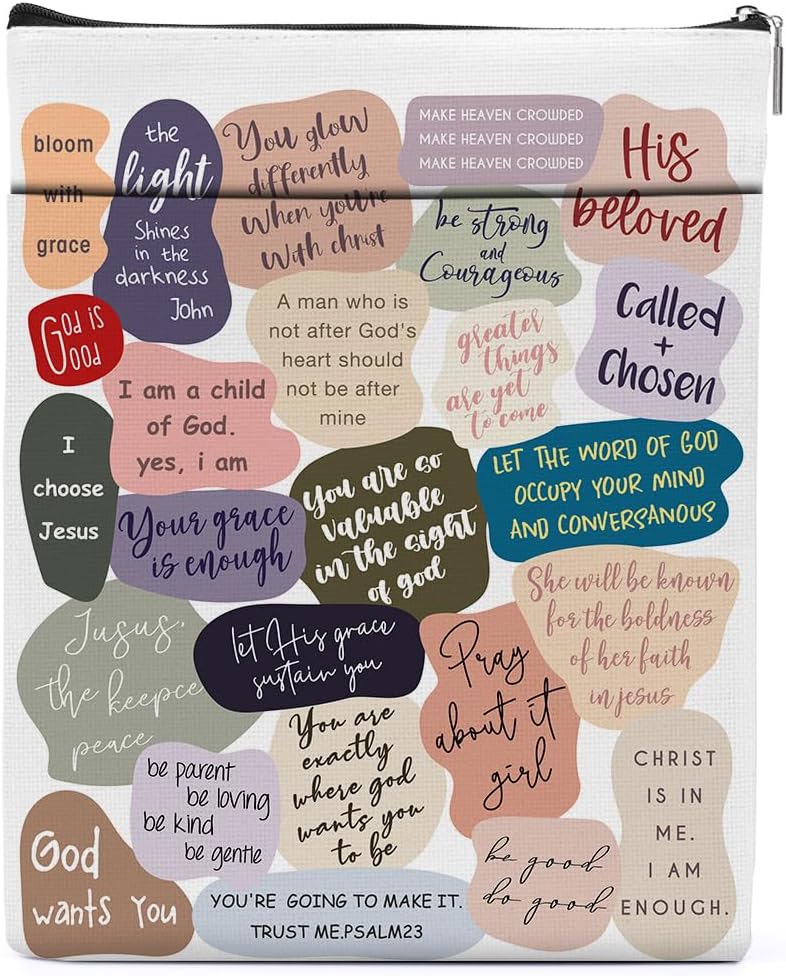 bloom
with
grace
the
light
Shines
in the
darkness
John
You glow
differently
When you're
With christ
MAKE HEAVEN CROWDED
MAKE HEAVEN CROWDED
MAKE HEAVEN CROWDED
His
beloved
be strong
and
Courageous
God is
Good
A man who is
not after God's
heart should
not be after
mine
greater
things
are yet
to come
Called
+
Chosen
I am a child
of God.
yes, i am
I
choose
Jesus
You are so
valuable
in the sight
of god
LET THE WORD OF GOD
OCCUPY YOUR MIND
AND CONVERSANOUS
Your grace
is enough
She will be known
for the boldness
of her faith
in jesus
Jusus,
the keepce
peace
let His grace
sustain you
Pray
about it
girl
You are
exactly
where god
wants you
to be
CHRIST
IS IN
ME.
I AM
ENOUGH.
be parent
be loving
be kind
be gentle
God
wants You
be good
do good
YOU'RE GOING TO MAKE IT.
TRUST ME.PSALM23